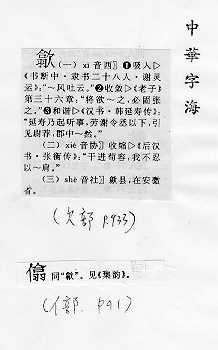 中華字海
歙 (一) xī 音西〗❶吸入▷
《书断中·隶书二十八人·谢灵
运》:“～风吐云。”❷收敛▷《老子》
第三十六章:“将欲～之,必固张
之。”❸和谐▷《汉书·韩延寿传》:
“延寿乃起听事,劳谢令丞以下,引
见尉荐,郡中～然。”
(二) xié 音协〗收缩▷《后汉
书·张衡传》:“干进苟容,我不忍
以～肩。”
(三) shè 音社〗歙县,在安徽
省。
(欠部 P.933)
同“歙”。见《集韵》。
(亻部 P.91)